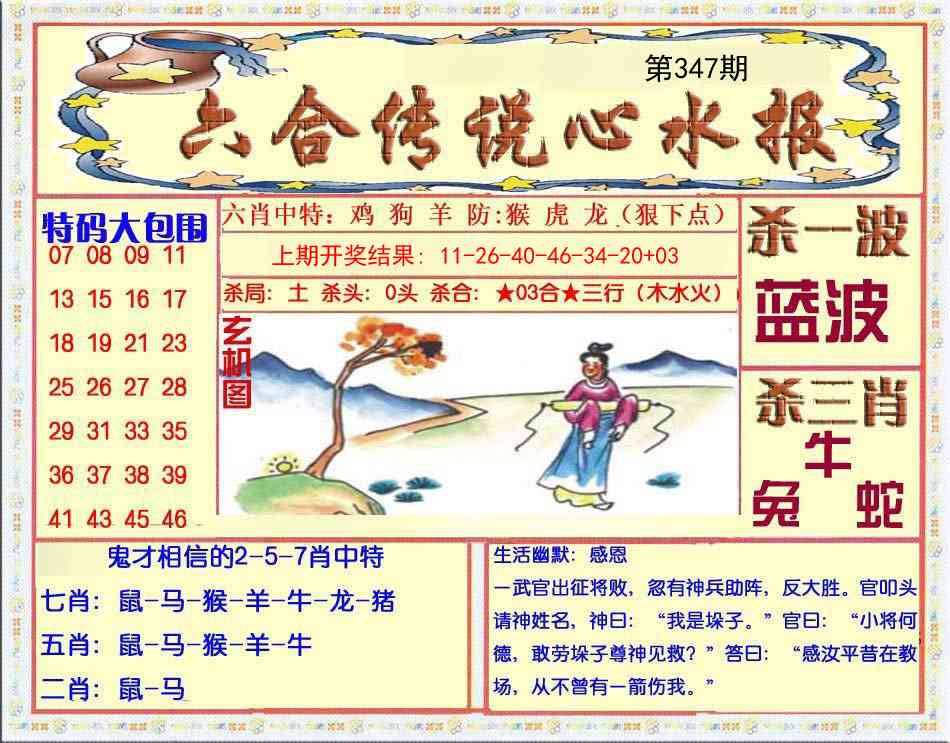 第347期
六合传说心水报
特码大包围
07 08 09 11
13 15 16 17
18 19 21 23
25 26 27 28
29 31 33 35
36 37 38 39
41 43 45 46
六肖中特：鸡 狗 羊 防:猴 虎 龙（狠下点）
上期开奖结果：11-26-40-46-34-20+03
杀局：土 杀头：0头 杀合：★03合★三行（木水火）
玄机图
杀一波
蓝波
杀三肖
牛
兔 蛇
鬼才相信的2-5-7肖中特
七肖：鼠-马-猴-羊-牛-龙-猪
五肖：鼠-马-猴-羊-牛
二肖：鼠-马
生活幽默：感恩
一武官出征将败，忽有神兵助阵，反大胜。官叩头
请神姓名，神曰：“我是垛子。”官曰：“小将何
德，敢劳垛子尊神见救？”答曰：“感汝平昔在教
场，从不曾有一箭伤我。”